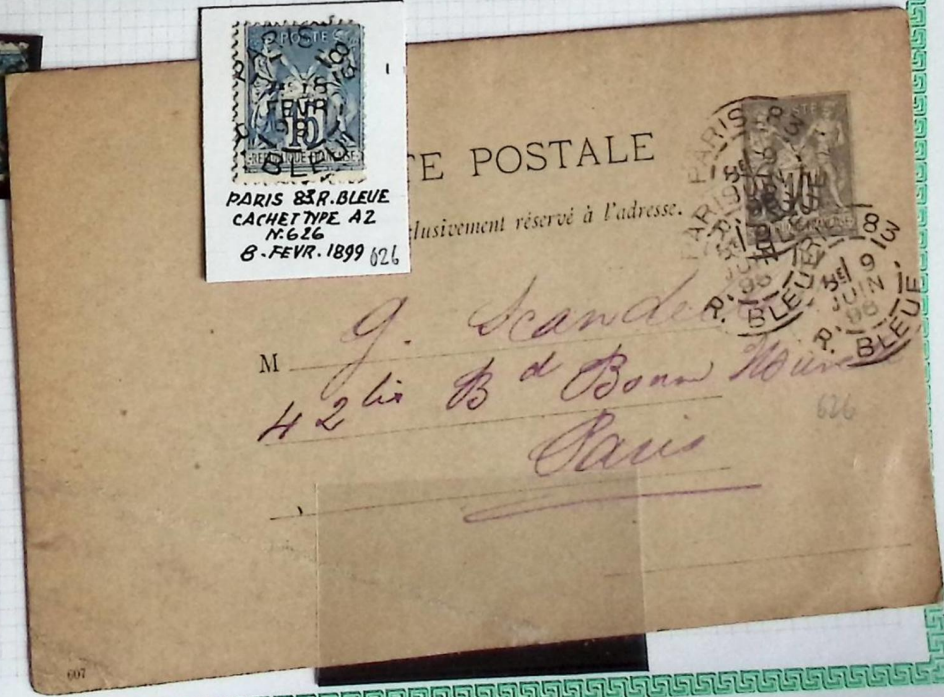 PARIS 83
8
FEVR
99
R. BLEUE
POSTE
15
REPUBLIQUE FRANÇAISE
PARIS 83 R. BLEUE
CACHET TYPE A2
N. 626
8. FEVR. 1899 626
TE POSTALE
clusivement réservé à l'adresse.
PARIS 83
R. BLEUE
83
9
JUIN
98
R. BLEUE
M G.
42 bis Bd Bonne
Paris
626
607